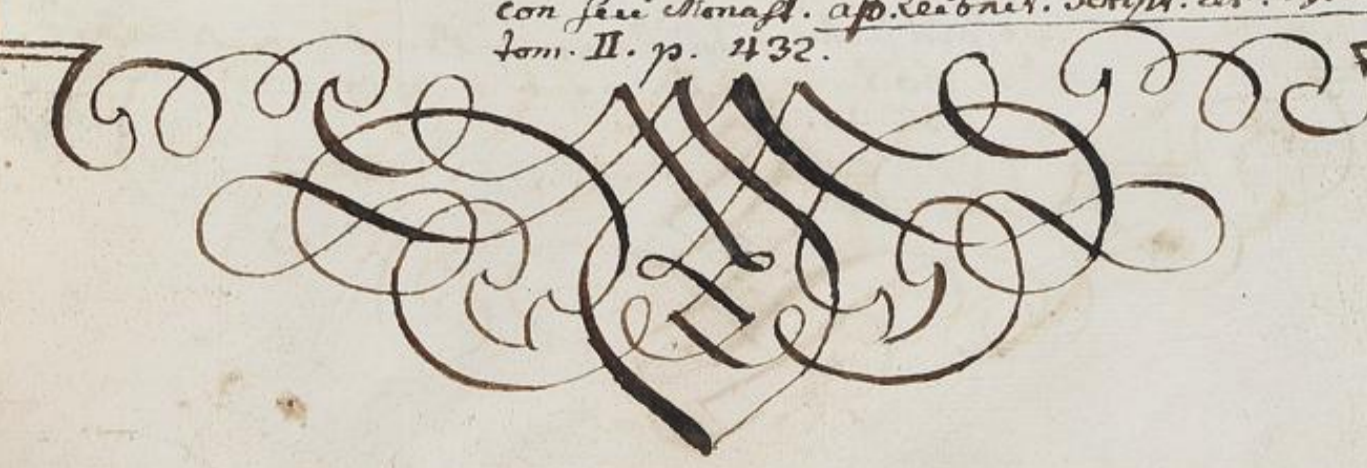 con seci Monast. ap. Leibnit. Script.
tom. II. p. 432.